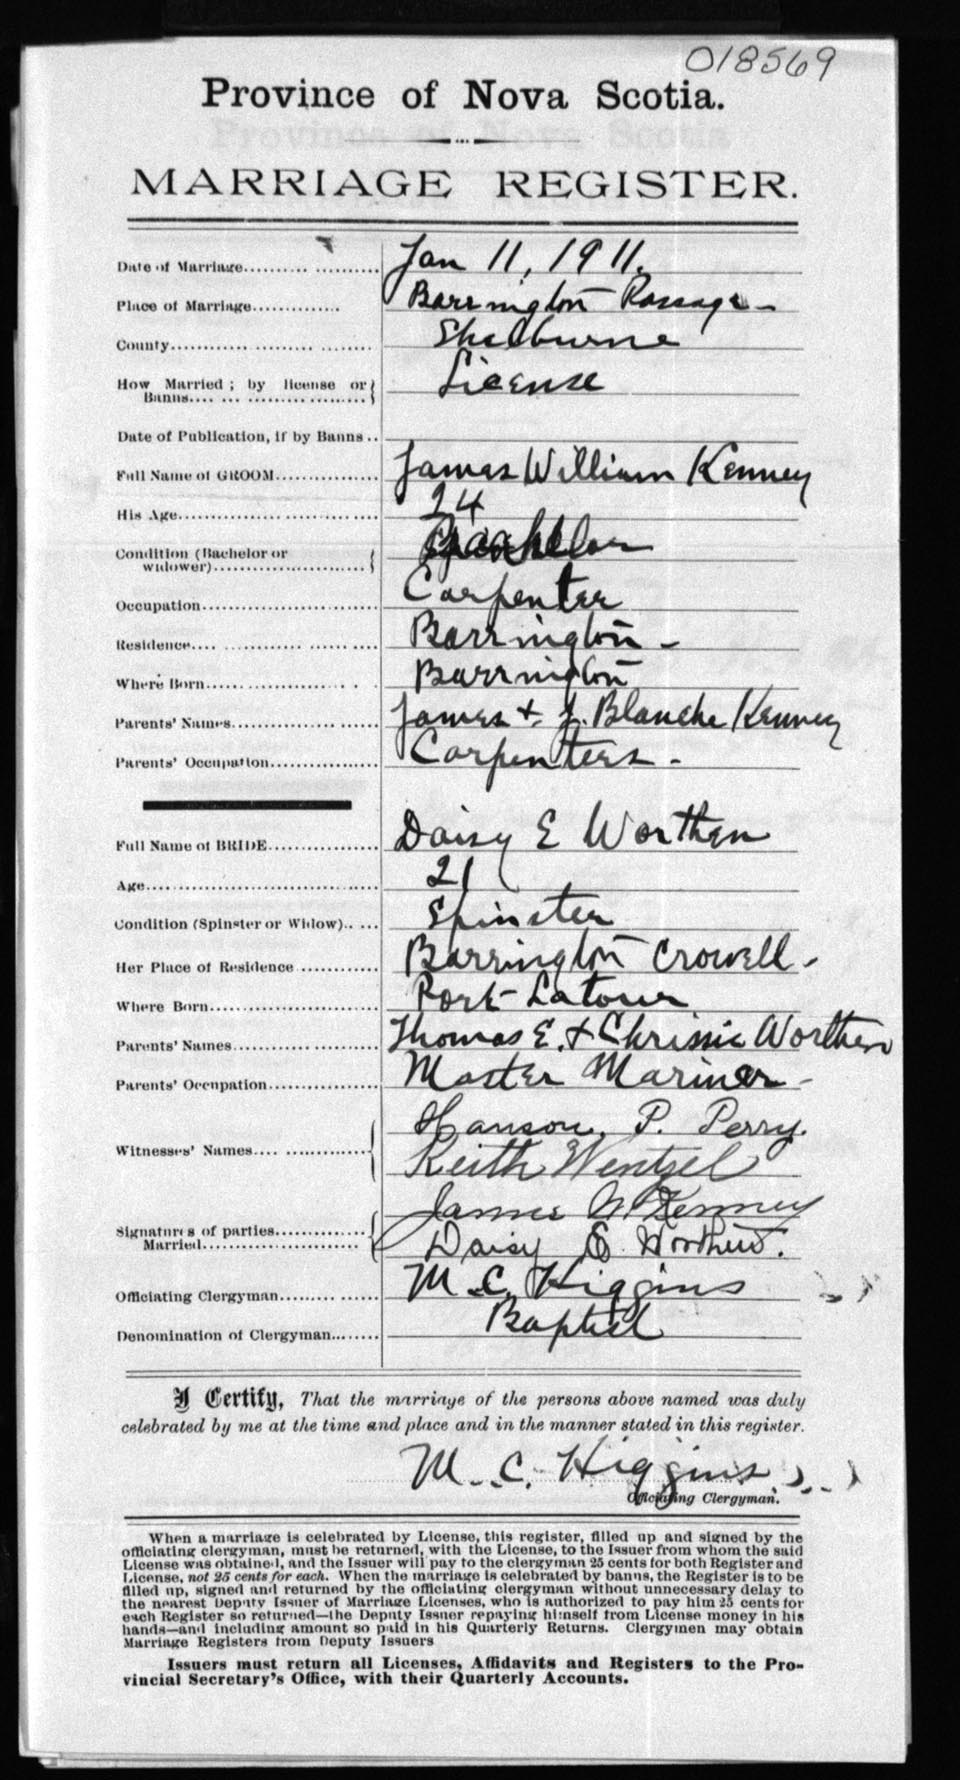 018569
Province of Nova Scotia.
MARRIAGE REGISTER.
Date of Marriage Jan 11, 1911.
Place of Marriage Barrington Passage -
County Shelburne
How Married; by license or Banns License
Date of Publication, if by Banns
Full Name of GROOM James William Kenney
His Age 24
Condition (Bachelor or widower) Bachelor
Occupation Carpenter
Residence Barrington -
Where Born Barrington
Parents' Names James + J. Blanche Kenney
Parents' Occupation Carpenters -
Full Name of BRIDE Daisy E Worthen
Age 21
Condition (Spinster or Widow) Spinster
Her Place of Residence Barrington Crowell -
Where Born Port Latour
Parents' Names Thomas E. + Chrissie Worthen
Parents' Occupation Master Mariner -
Witnesses' Names Hanson. P. Perry.
Keith Wentzel
Signatures of parties Married James W Kenney
Daisy E. Worthen.
Officiating Clergyman M. C. Higgins
Denomination of Clergyman Baptist
I Certify, That the marriage of the persons above named was duly
celebrated by me at the time and place and in the manner stated in this register.
M. C. Higgins
Officiating Clergyman.
When a marriage is celebrated by License, this register, filled up and signed by the
officiating clergyman, must be returned, with the License, to the Issuer from whom the said
License was obtained, and the Issuer will pay to the clergyman 25 cents for both Register and
License, not 25 cents for each. When the marriage is celebrated by banns, the Register is to be
filled up, signed and returned by the officiating clergyman without unnecessary delay to
the nearest Deputy Issuer of Marriage Licenses, who is authorized to pay him 25 cents for
each Register so returned—the Deputy Issuer repaying himself from License money in his
hands—and including amount so paid in his Quarterly Returns. Clergymen may obtain
Marriage Registers from Deputy Issuers
Issuers must return all Licenses, Affidavits and Registers to the Pro-
vincial Secretary's Office, with their Quarterly Accounts.